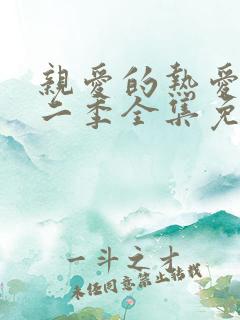 親愛的熱愛
二季全集免
一斗之才
未經同意禁止轉載